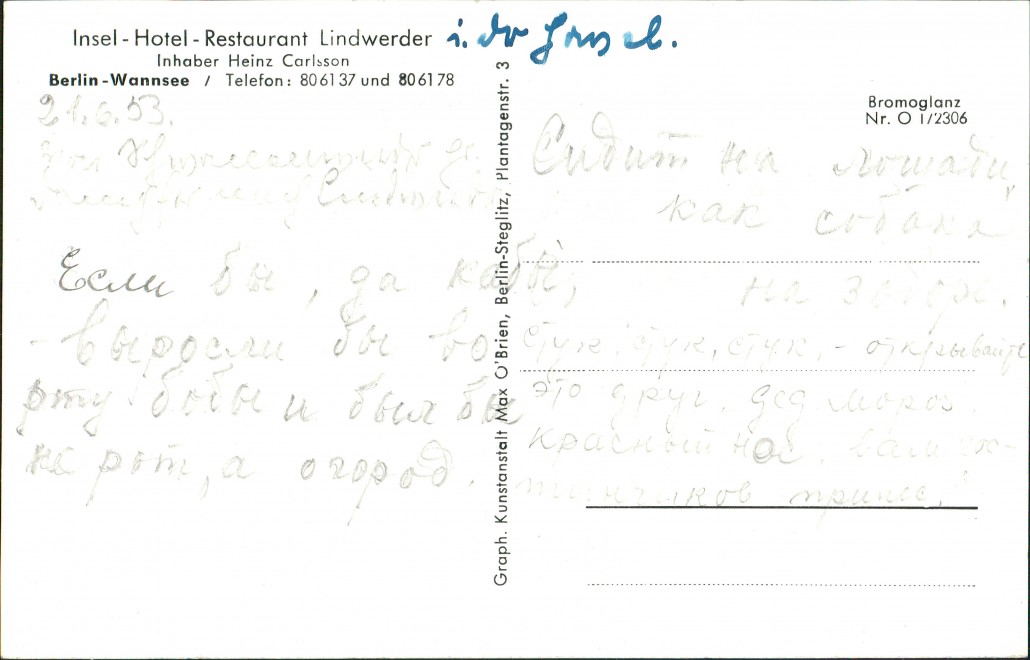 Insel-Hotel-Restaurant Lindwerder
Inhaber Heinz Carlsson
Berlin-Wannsee / Telefon: 80 61 37 und 80 61 78
21.6.53.
Если бы, да кабы,
- выросли бы во
рту бобы и был бы
не рот, а огород.
Graph. Kunstanstalt Max O'Brien, Berlin-Steglitz, Plantagenstr. 3
Bromoglanz
Nr. O 1/2306
Сидит на лошади,
как собака
на заборе.
стук, стук, стук, - открывайте
это друг, дед мороз,
красный нос, вам
принес.